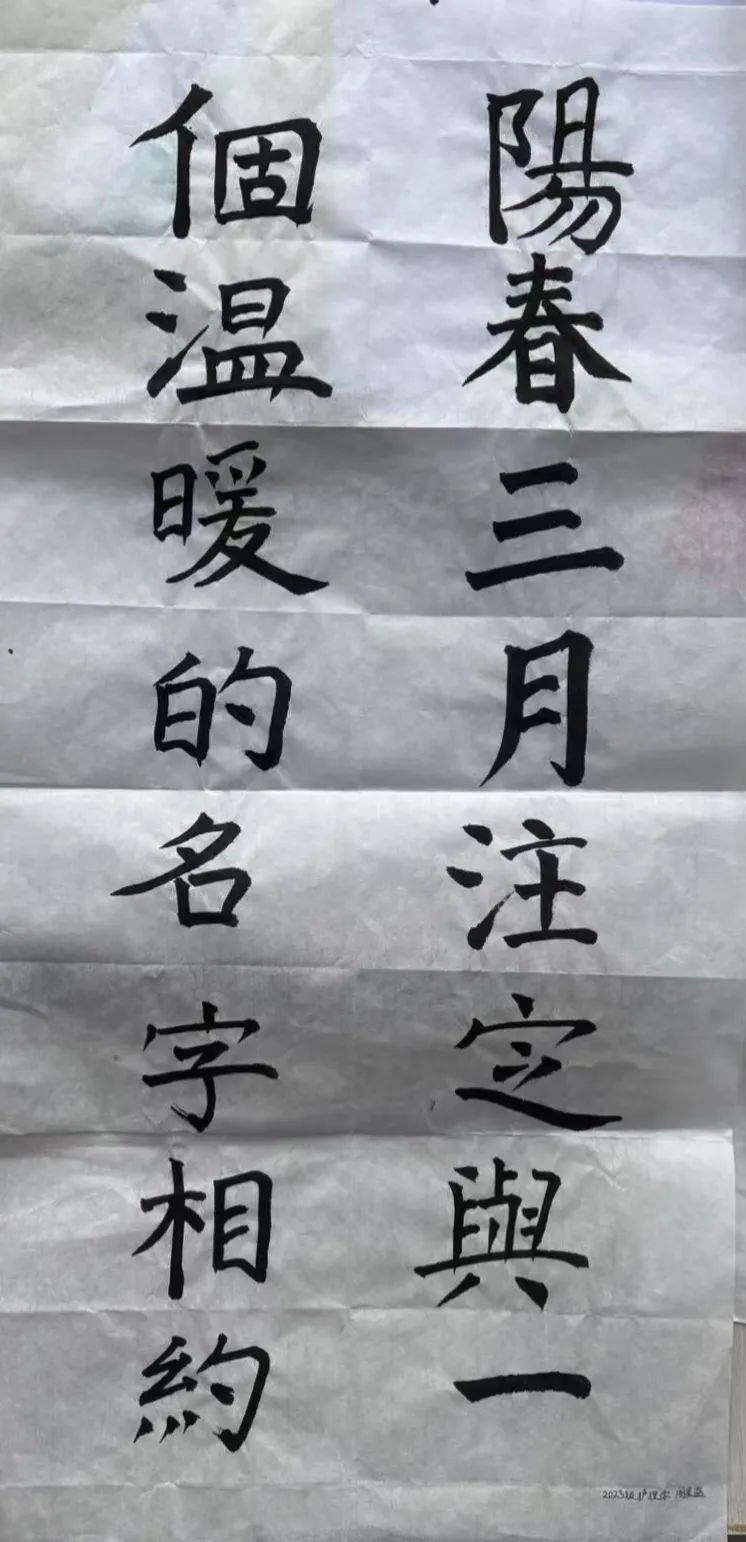 陽春三月注定與一
個温暖的名字相約
2023级护理